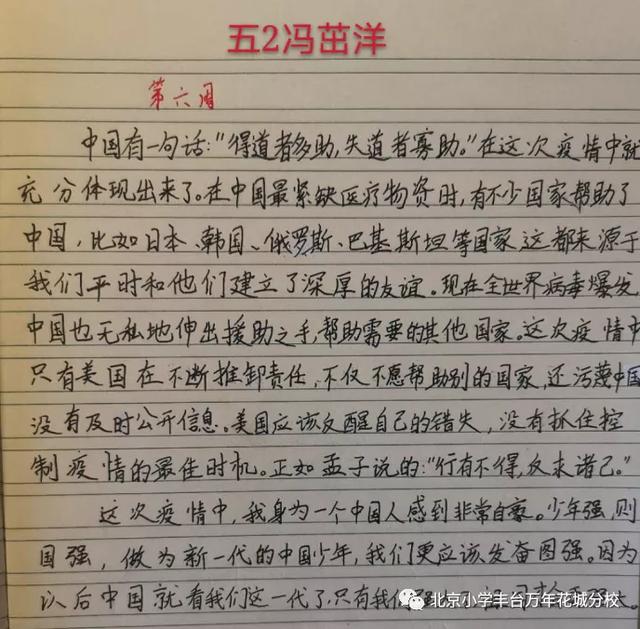 五2冯茁洋
第六周
中国有一句话:"得道者多助,失道者寡助。"在这次疫情中就
充分体现出来了。在中国最紧缺医疗物资时,有不少国家帮助了
中国,比如日本、韩国、俄罗斯、巴基斯坦等国家这都来源于
我们平时和他们建立了深厚的友谊。现在全世界病毒爆发
中国也无私地伸出援助之手,帮助需要的其他国家。这次疫情中
只有美国在不断推卸责任,不仅不愿帮助别的国家,还污蔑中国
没有及时公开信息。美国应该反醒自己的错失,没有抓住控
制疫情的最佳时机。正如孟子说的:"行有不得,反求诸己。"
这次疫情中,我身为一个中国人感到非常自豪。少年强,则
国强,做为新一代的中国少年,我们更应该发奋图强。因为
以后中国就看我们这一代了,只有我们强
北京小学丰台万年花城分校